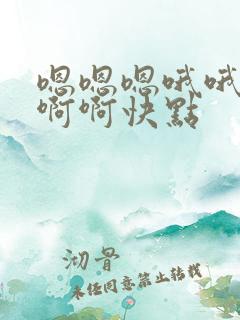 嗯嗯嗯哦哦
啊啊快點
沏骨
未经同意禁止转载